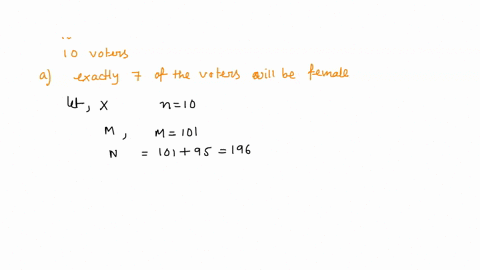 10 voters
a) exactly 7 of the voters will be female
let, X n=10
M, M=101
N = 101+95 = 196